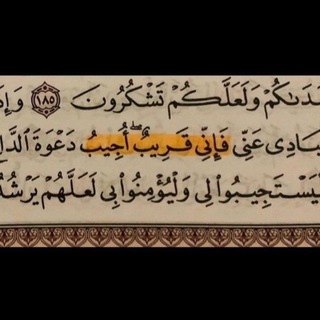 دَىٰكُمْ وَلَعَلَّكُمْ تَشْكُرُونَ ﴿١٨٥﴾ وَإِذَ
بَادِى عَنِّى فَإِنِّى قَرِيبٌ ۖ أُجِيبُ دَعْوَةَ ٱلدَّا
لْيَسْتَجِيبُوا۟ لِى وَلْيُؤْمِنُوا۟ بِى لَعَلَّهُمْ يَرْشُدُ